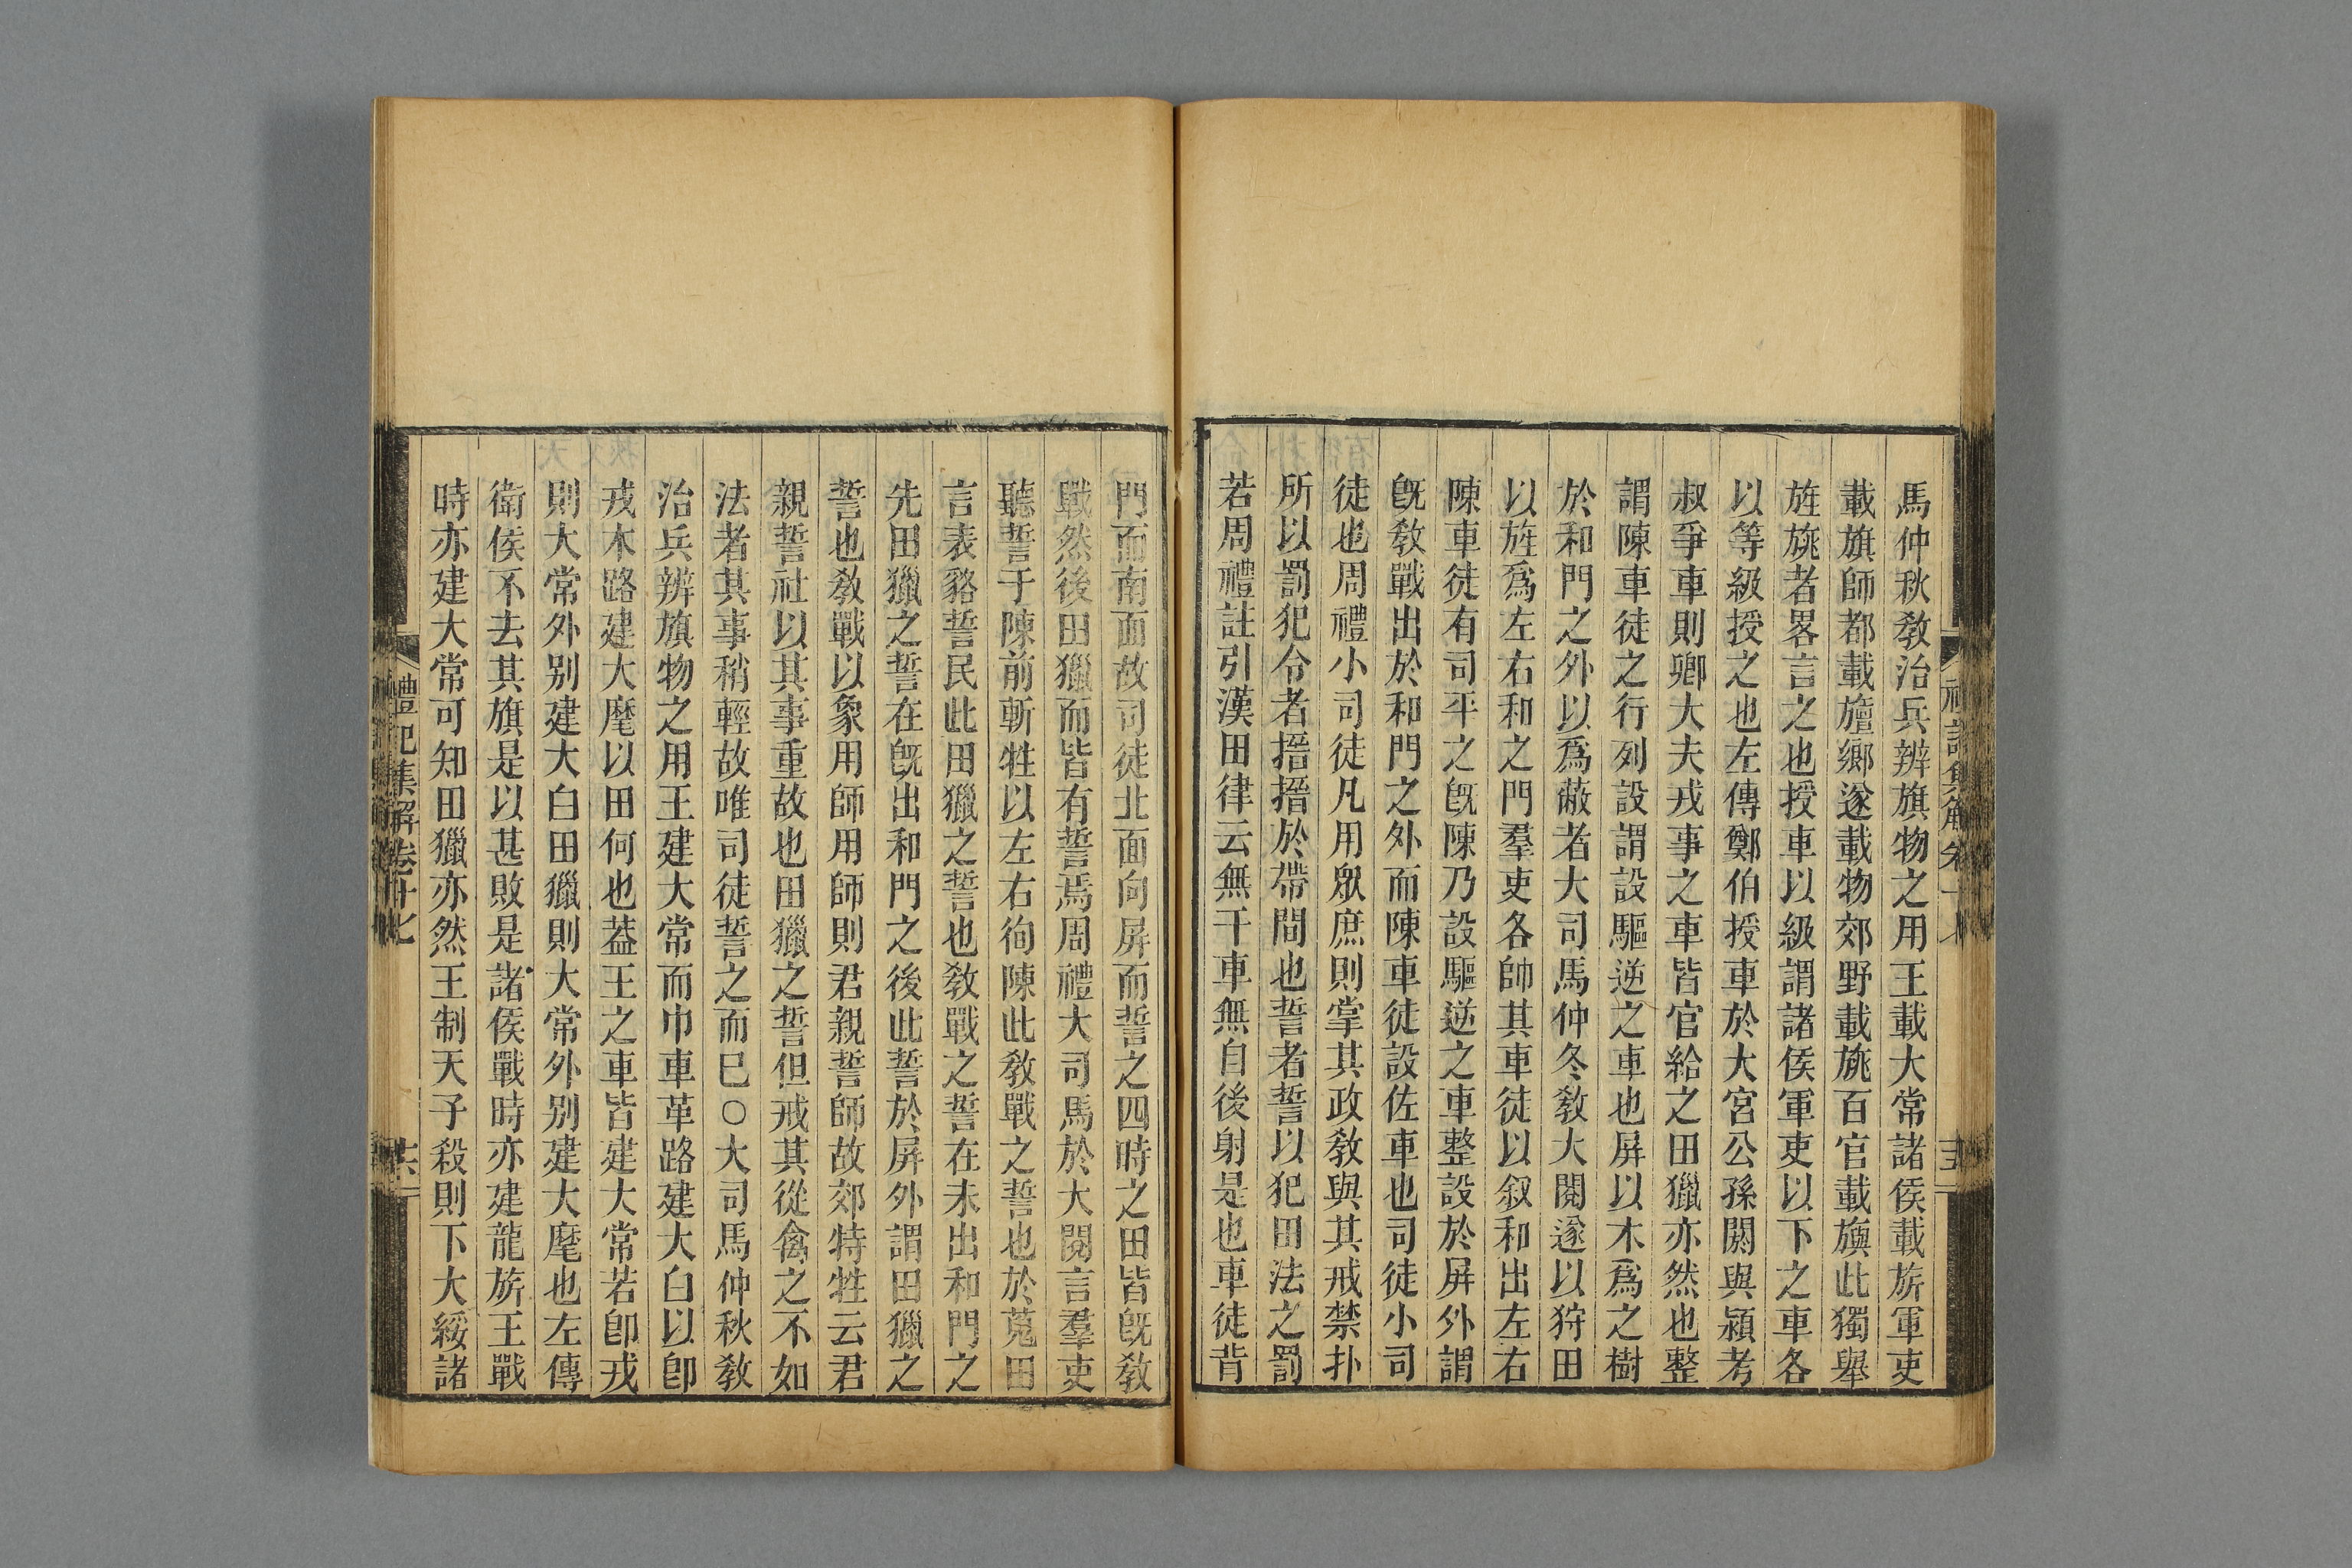 馬仲秋敎治兵辨旗物之用王載大常諸侯載旂軍吏
載旗師都載旜鄉遂載物郊野載旐百官載旟此獨舉
旌旐者畧言之也授車以級謂諸侯軍吏以下之車各
以等級授之也左傳鄭伯授車於大宮公孫閼與潁考
叔爭車則卿大夫戎事之車皆官給之田獵亦然也整
謂陳車徒之行列設謂設驅逆之車也屏以木爲之樹
於和門之外以爲蔽者大司馬仲冬敎大閱遂以狩田
以旌爲左右和之門羣吏各帥其車徒以叙和出左右
陳車徒有司平之旣陳乃設驅逆之車整設於屏外謂
旣敎戰出於和門之外而陳車徒設佐車也司徒小司
徒也周禮小司徒凡用眾庶則掌其政敎與其戒禁扑
所以罰犯令者搢搢於帶間也誓者誓以犯田法之罰
若周禮註引漢田律云無干車無自後射是也車徒背
門而南面故司徒北面向屏而誓之四時之田皆旣敎
戰然後田獵而皆有誓焉周禮大司馬於大閱言羣吏
聽誓于陳前斬牲以左右徇陳此敎戰之誓也於蒐田
言表貉誓民此田獵之誓也敎戰之誓在未出和門之
先田獵之誓在旣出和門之後此誓於屏外謂田獵之
誓也敎戰以象用師用師則君親誓師故郊特牲云君
親誓社以其事重故也田獵之誓但戒其從禽之不如
法者其事稍輕故唯司徒誓之而已○大司馬仲秋敎
治兵辨旗物之用王建大常而巾車革路建大白以卽
戎木路建大麾以田何也葢王之車皆建大常若卽戎
則大常外別建大白田獵則大常外別建大麾也左傳
衛侯不去其旗是以甚敗是諸侯戰時亦建龍旂王戰
時亦建大常可知田獵亦然王制天子殺則下大綏諸
禮記集解卷十七